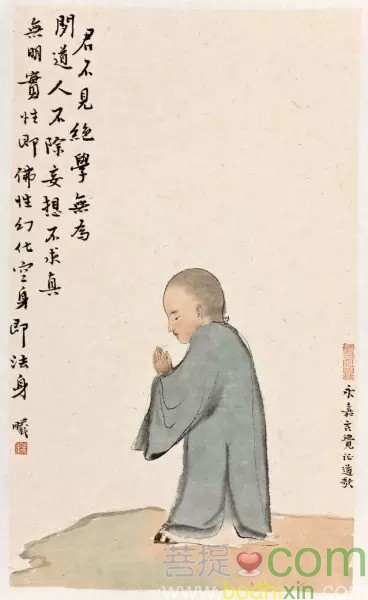 君不見絕學無為
閒道人不除妄想不求真
無明實性即佛性幻化空身即法身
永嘉玄覺证道歌
菩提com
www.bodhixin.com